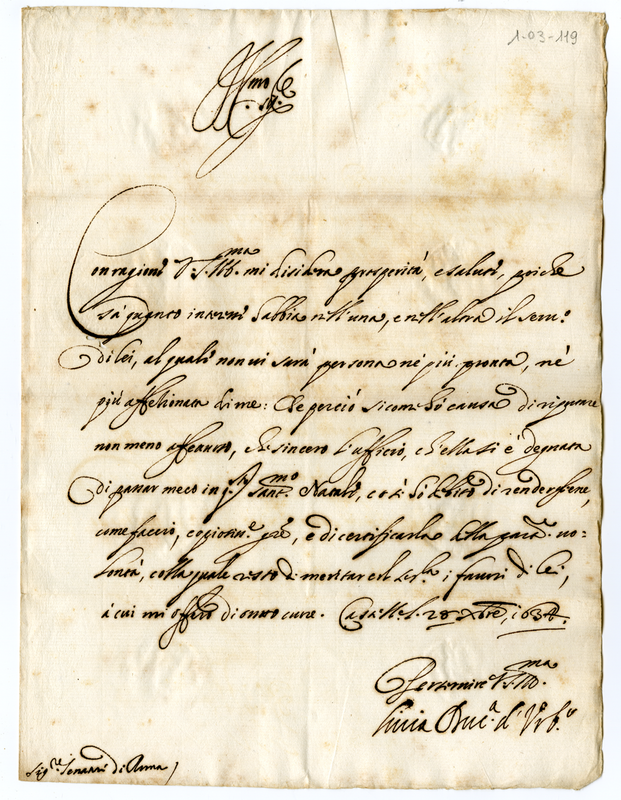 1-03-119
Ill.mo Sig.re
Con ragione V.S. Ill.ma mi disidera prosperità, e salute, poiche
sà quanto interesse habbia nell'una, e nell'altra il seru.o
di lei, al quale non ui sarà persona nè più pronta, nè
più affettionata di me: Che perciò sicome hò causa di riputare
non meno affettuoso, che sincero l'ufficio, ch'ella si è degnata
di passar meco in q.sto sant.mo Natale, così hò debito di rendergliene,
come faccio, copiosiss.e gr.e, e di certificarla della parat.ma uo-
lontà, colla quale resto di meritar col seru.la i fauori di lei,
à cui mi offero di tutto cuore. 28 Xbre, 1634.
Per seruire V.S. Ill.ma
Liuia Duc.a d'Vrb.o
Sig.re Senatore di Roma